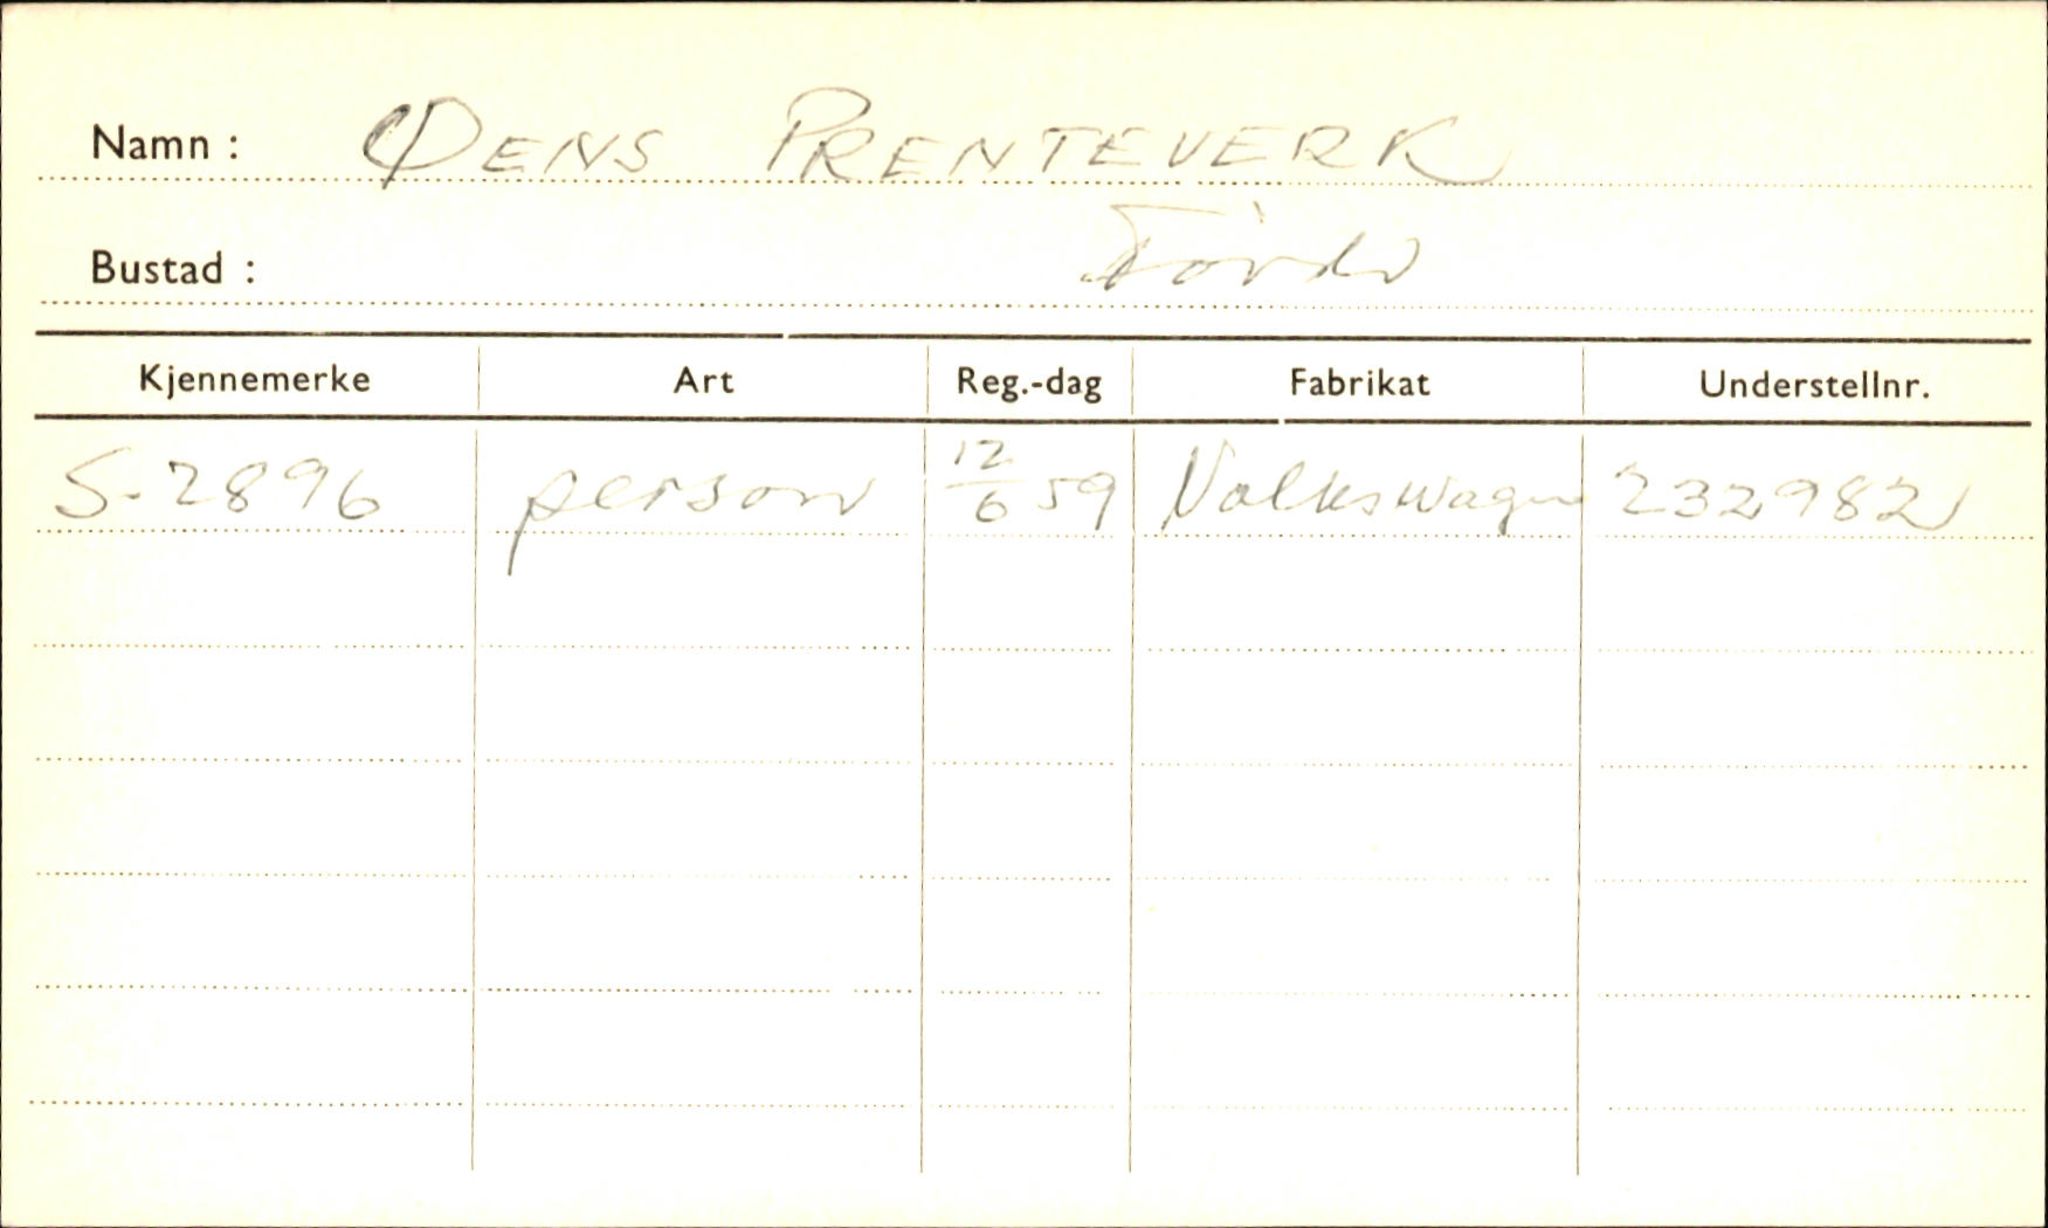 Namn : ØENS PRENTEVERK
Bustad : Førde
Kjennemerke Art Reg.-dag Fabrikat Understellnr.
S-2896 person 12/6 59 Volkswagen 232982